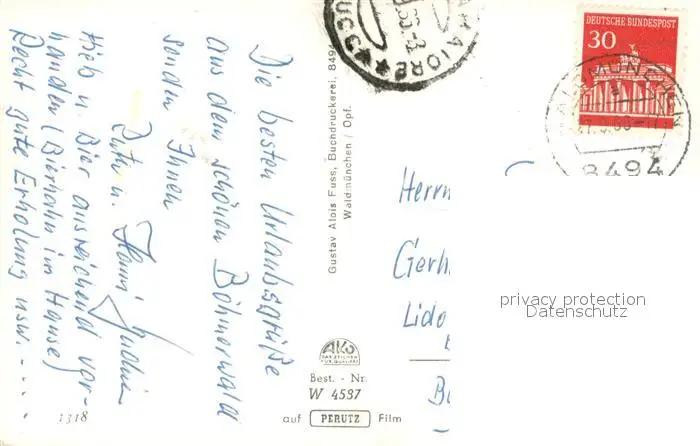 Die besten Urlaubsgrüße
aus dem schönen Böhmerwald
senden Ihnen
Ruth u. Hanni
Hieb u. Bier ausreichend vor-
handen (Bierhahn im Hause)
Recht gute Erholung usw. - . . . .
1318
Gustav Alois Fuss, Buchdruckerei, 8494
Waldmünchen / Opf.
AKO
DAS ZEICHEN
FÜR QUALITÄT
Best. - Nr.
W 4537
auf PERUTZ Film
AIORE
DEUTSCHE BUNDESPOST
30
WALDMÜNCHEN
8494
Herrn
Gerh
Lido
privacy protection
Datenschutz